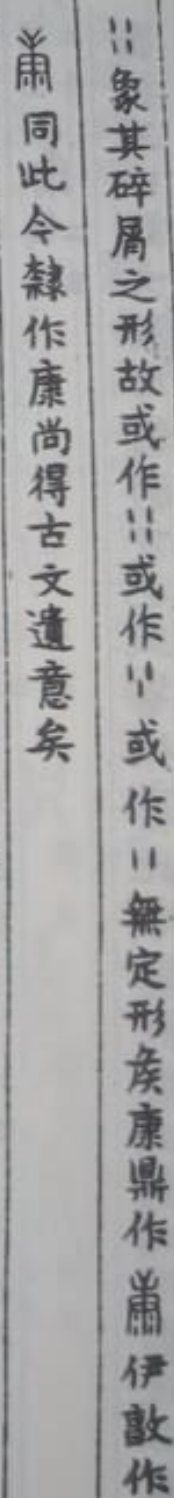 象其碎屑之形故或作或作或作無定形矦康鼎作伊𣪘作
同此今隸作康尚得古文遺意矣